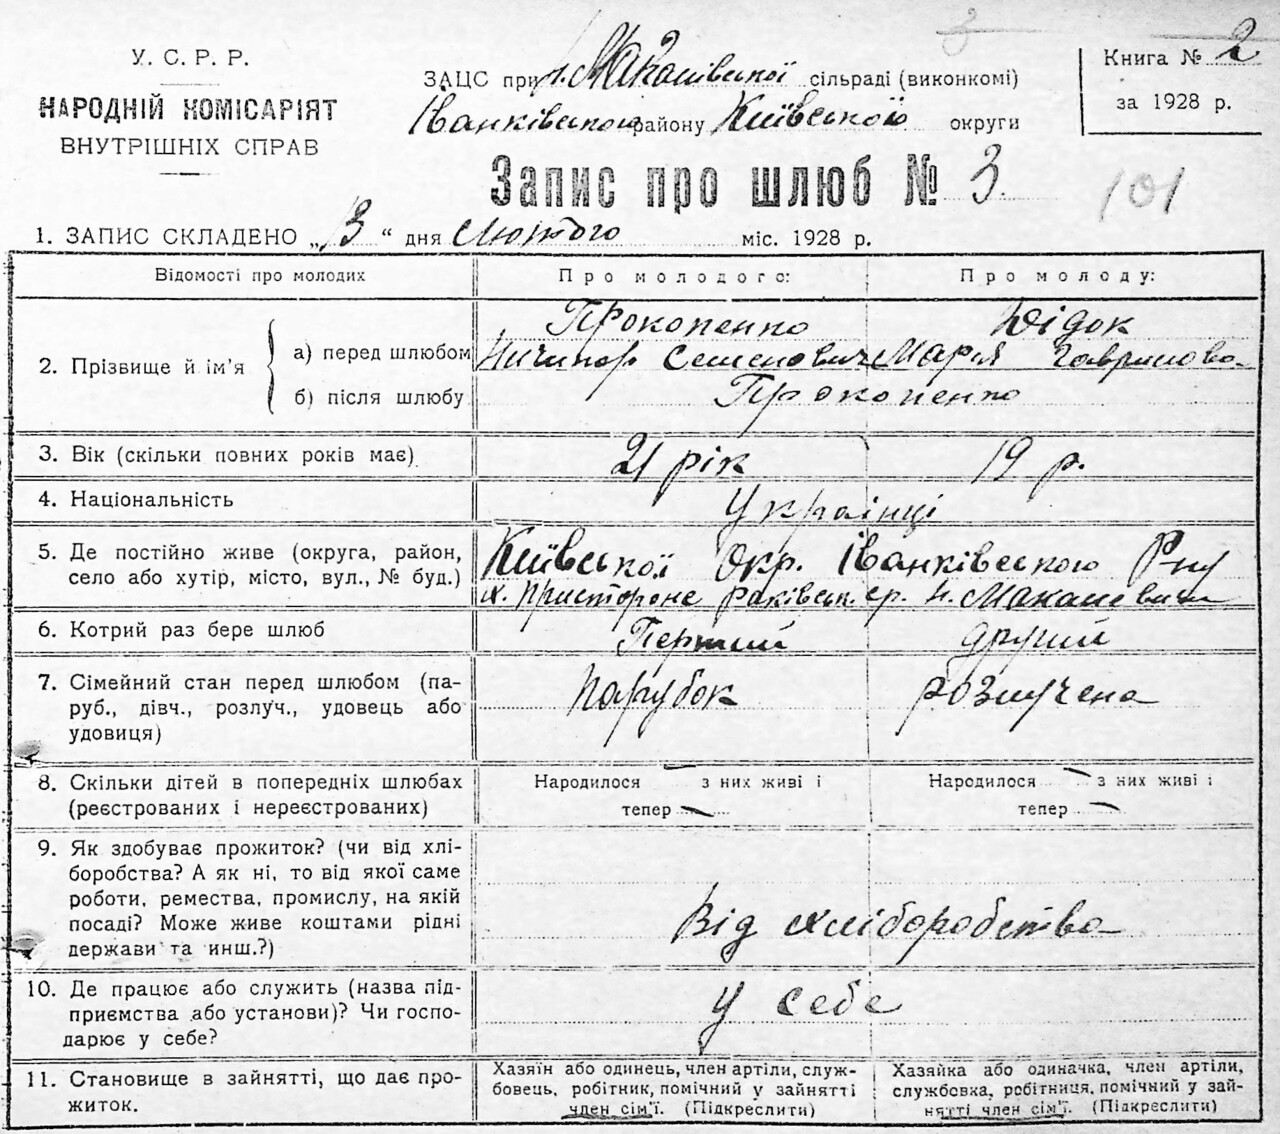 У. С. Р. Р.
НАРОДНІЙ КОМІСАРІЯТ
ВНУТРІШНІХ СПРАВ
ЗАЦС при Макалівської сільраді (виконкомі)
Іванківською району Київською округи
Книга № 2
за 1928 р.
Запис про шлюб № 3
101
1. ЗАПИС СКЛАДЕНО „13“ дня Лютого міс. 1928 р.
Відомості про молодих
Про молодого:
Про молоду:
2. Прізвище й ім’я
а) перед шлюбом
б) після шлюбу
Прокопенко
Ничипор Семенович
Дідок
Марія Гаврилова
Прокопенко
3. Вік (скільки повних років має)
21 рік
19 р.
4. Національність
Українці
5. Де постійно живе (округа, район,
село або хутір, місто, вул., № буд.)
Київської Окр. Іванківською Р-ну
х.
6. Котрий раз бере шлюб
Перший
Другий
7. Сімейний стан перед шлюбом (па-
руб., дівч., розлуч., удовець або
удовиця)
Парубок
розлучена
8. Скільки дітей в попередніх шлюбах
(реєстрованих і нереєстрованих)
Народилося — з них живі і
тепер —
Народилося — з них живі і
тепер —
9. Як здобуває прожиток? (чи від хлі-
боробства? А як ні, то від якої саме
роботи, ремества, промислу, на якій
посаді? Може живе коштами рідні
держави та инш.?)
Від хліборобства
10. Де працює або служить (назва під-
приємства або установи)? Чи госпо-
дарює у себе?
У себе
11. Становище в зайнятті, що дає про-
житок.
Хазяїн або одинець, член артіли, служ-
бовець, робітник, помічний у зайнятті
член сім’ї. (Підкреслити)
Хазяйка або одиначка, член артіли,
службовка, робітниця, помічний у зай-
нятті член сім’ї. (Підкреслити)